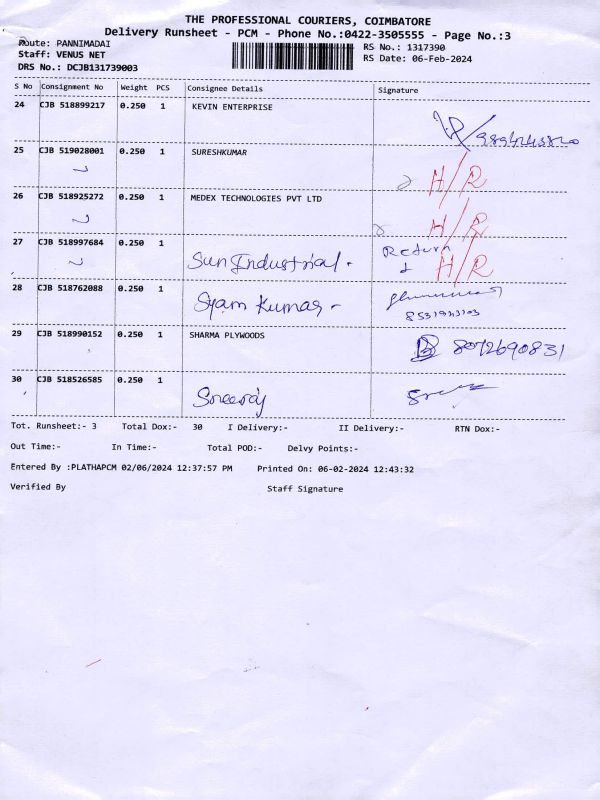 THE PROFESSIONAL COURIERS, COIMBATORE
Delivery Runsheet - PCM - Phone No.:0422-3505555 - Page No.:3
Route: PANNIMADAI
RS No.: 1317390
Staff: VENUS NET
RS Date: 06-Feb-2024
DRS No.: DCJB131739003
S No Consignment No Weight PCS Consignee Details Signature
24 CJB 518899217 0.250 1 KEVIN ENTERPRISE
25 CJB 519028001 0.250 1 SURESHKUMAR H/R
26 CJB 518925272 0.250 1 MEDEX TECHNOLOGIES PVT LTD H/R
27 CJB 518997684 0.250 1 Sun Industrial - Return H/R
28 CJB 518762088 0.250 1 Syam Kumar -
29 CJB 518990152 0.250 1 SHARMA PLYWOODS 8072690831
30 CJB 518526585 0.250 1 Sreeraj
Tot. Runsheet:- 3 Total Dox:- 30 I Delivery:- II Delivery:- RTN Dox:-
Out Time:- In Time:- Total POD:- Delvy Points:-
Entered By :PLATHAPCM 02/06/2024 12:37:57 PM Printed On: 06-02-2024 12:43:32
Verified By Staff Signature